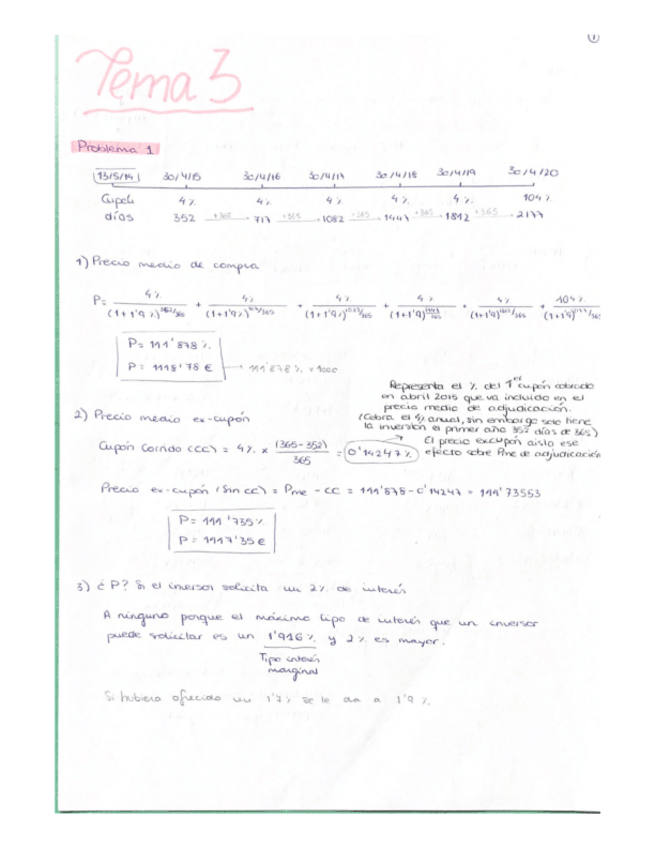 1
Tema 3
Problema 1
13/5/14 30/4/15 30/4/16 30/4/17 30/4/18 30/4/19 30/4/20
Cupón 4% 4% 4% 4% 4% 104%
días 352 +365 717 +365 1082 +365 1447 +365 1812 +365 2177
1) Precio medio de compra
P = 4% / (1+1'9%)^352/365 + 4% / (1+1'9%)^717/365 + 4% / (1+1'9%)^1082/365 + 4% / (1+1'9%)^1447/365 + 4% / (1+1'9%)^1812/365 + 104% / (1+1'9)^2177/365
P = 111'878 %
P = 1118'78 € → 111'878 % × 1000
Representa el % del 1er cupón cobrado
en abril 2015 que va incluido en el
precio medio de adjudicación.
(Cobra el 4% anual, sin embargo solo tiene
la inversión el primer año 352 días de 365)
El precio excupón aisla ese
efecto sobre Pme de adjudicación
2) Precio medio ex-cupón
Cupón Corrido (CC) = 4% × (365-352) / 365 = 0'14247 %
Precio ex-cupón (Sin CC) = Pme - CC = 111'878 - 0'14247 = 111'73553
P = 111'735 %
P = 1117'35 €
3) ¿P? Si el inversor solicita un 2% de interés
A ninguno porque el máximo tipo de interés que un inversor
puede solicitar es un 1'916 % y 2% es mayor.
Tipo interés
marginal
Si hubiera ofrecido un 1'7% se le da a 1'9 %.